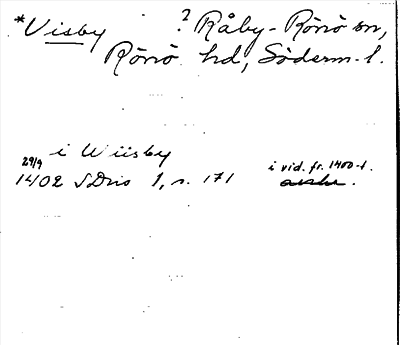 *Visby ? Råby-Rönö sn,
Rönö hd, Söderm. l.
i Wiisby
29/9 1402 SDns 1, s. 171
i vid. fr. 1400-t.
avskr.